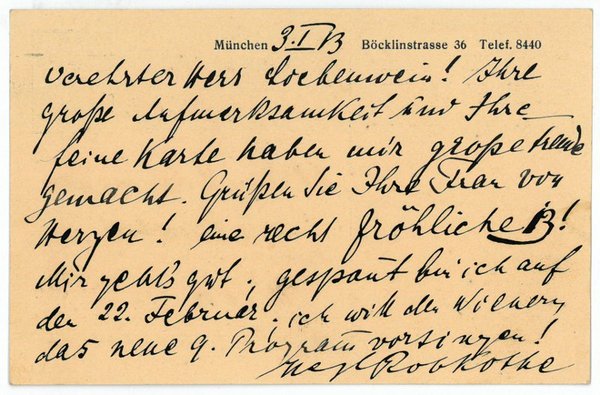 München 3.I 13 Böcklinstrasse 36 Telef. 8440
verehrter Herr Loebenwein! Ihre
große Aufmerksamkeit und Ihre
feine Karte haben mir große Freude
gemacht. Grüßen Sie Ihre Frau von
Herzen! eine recht fröhliche 13!
Mir geht's gut, gespañt bin ich auf
den 22. Februar. ich will den Wienern
das neue 9. Program̅ vorsingen!
Rob Kothe